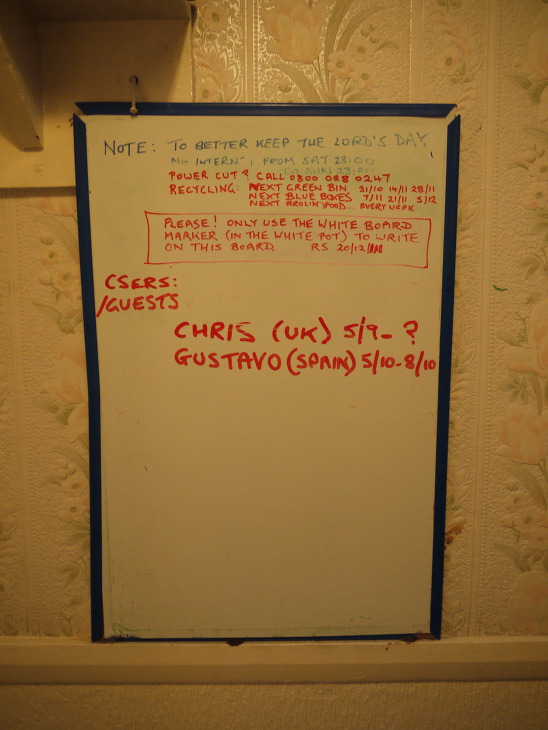 NOTE: TO BETTER KEEP THE LORD'S DAY,
NO INTERN , FROM SAT 23:00
TO SUN 23:00
POWER CUT? CALL 0800 028 0247
RECYCLING: NEXT GREEN BIN 31/10 14/11 28/11
NEXT BLUE BOXES 7/11 21/11 5/12
NEXT BROWN FOOD... EVERY WEEK
PLEASE! ONLY USE THE WHITE BOARD
MARKER (IN THE WHITE POT) TO WRITE
ON THIS BOARD RS 20/12/
CSERS:
/GUESTS
CHRIS (UK) 5/9-?
GUSTAVO (SPAIN) 5/10-8/10